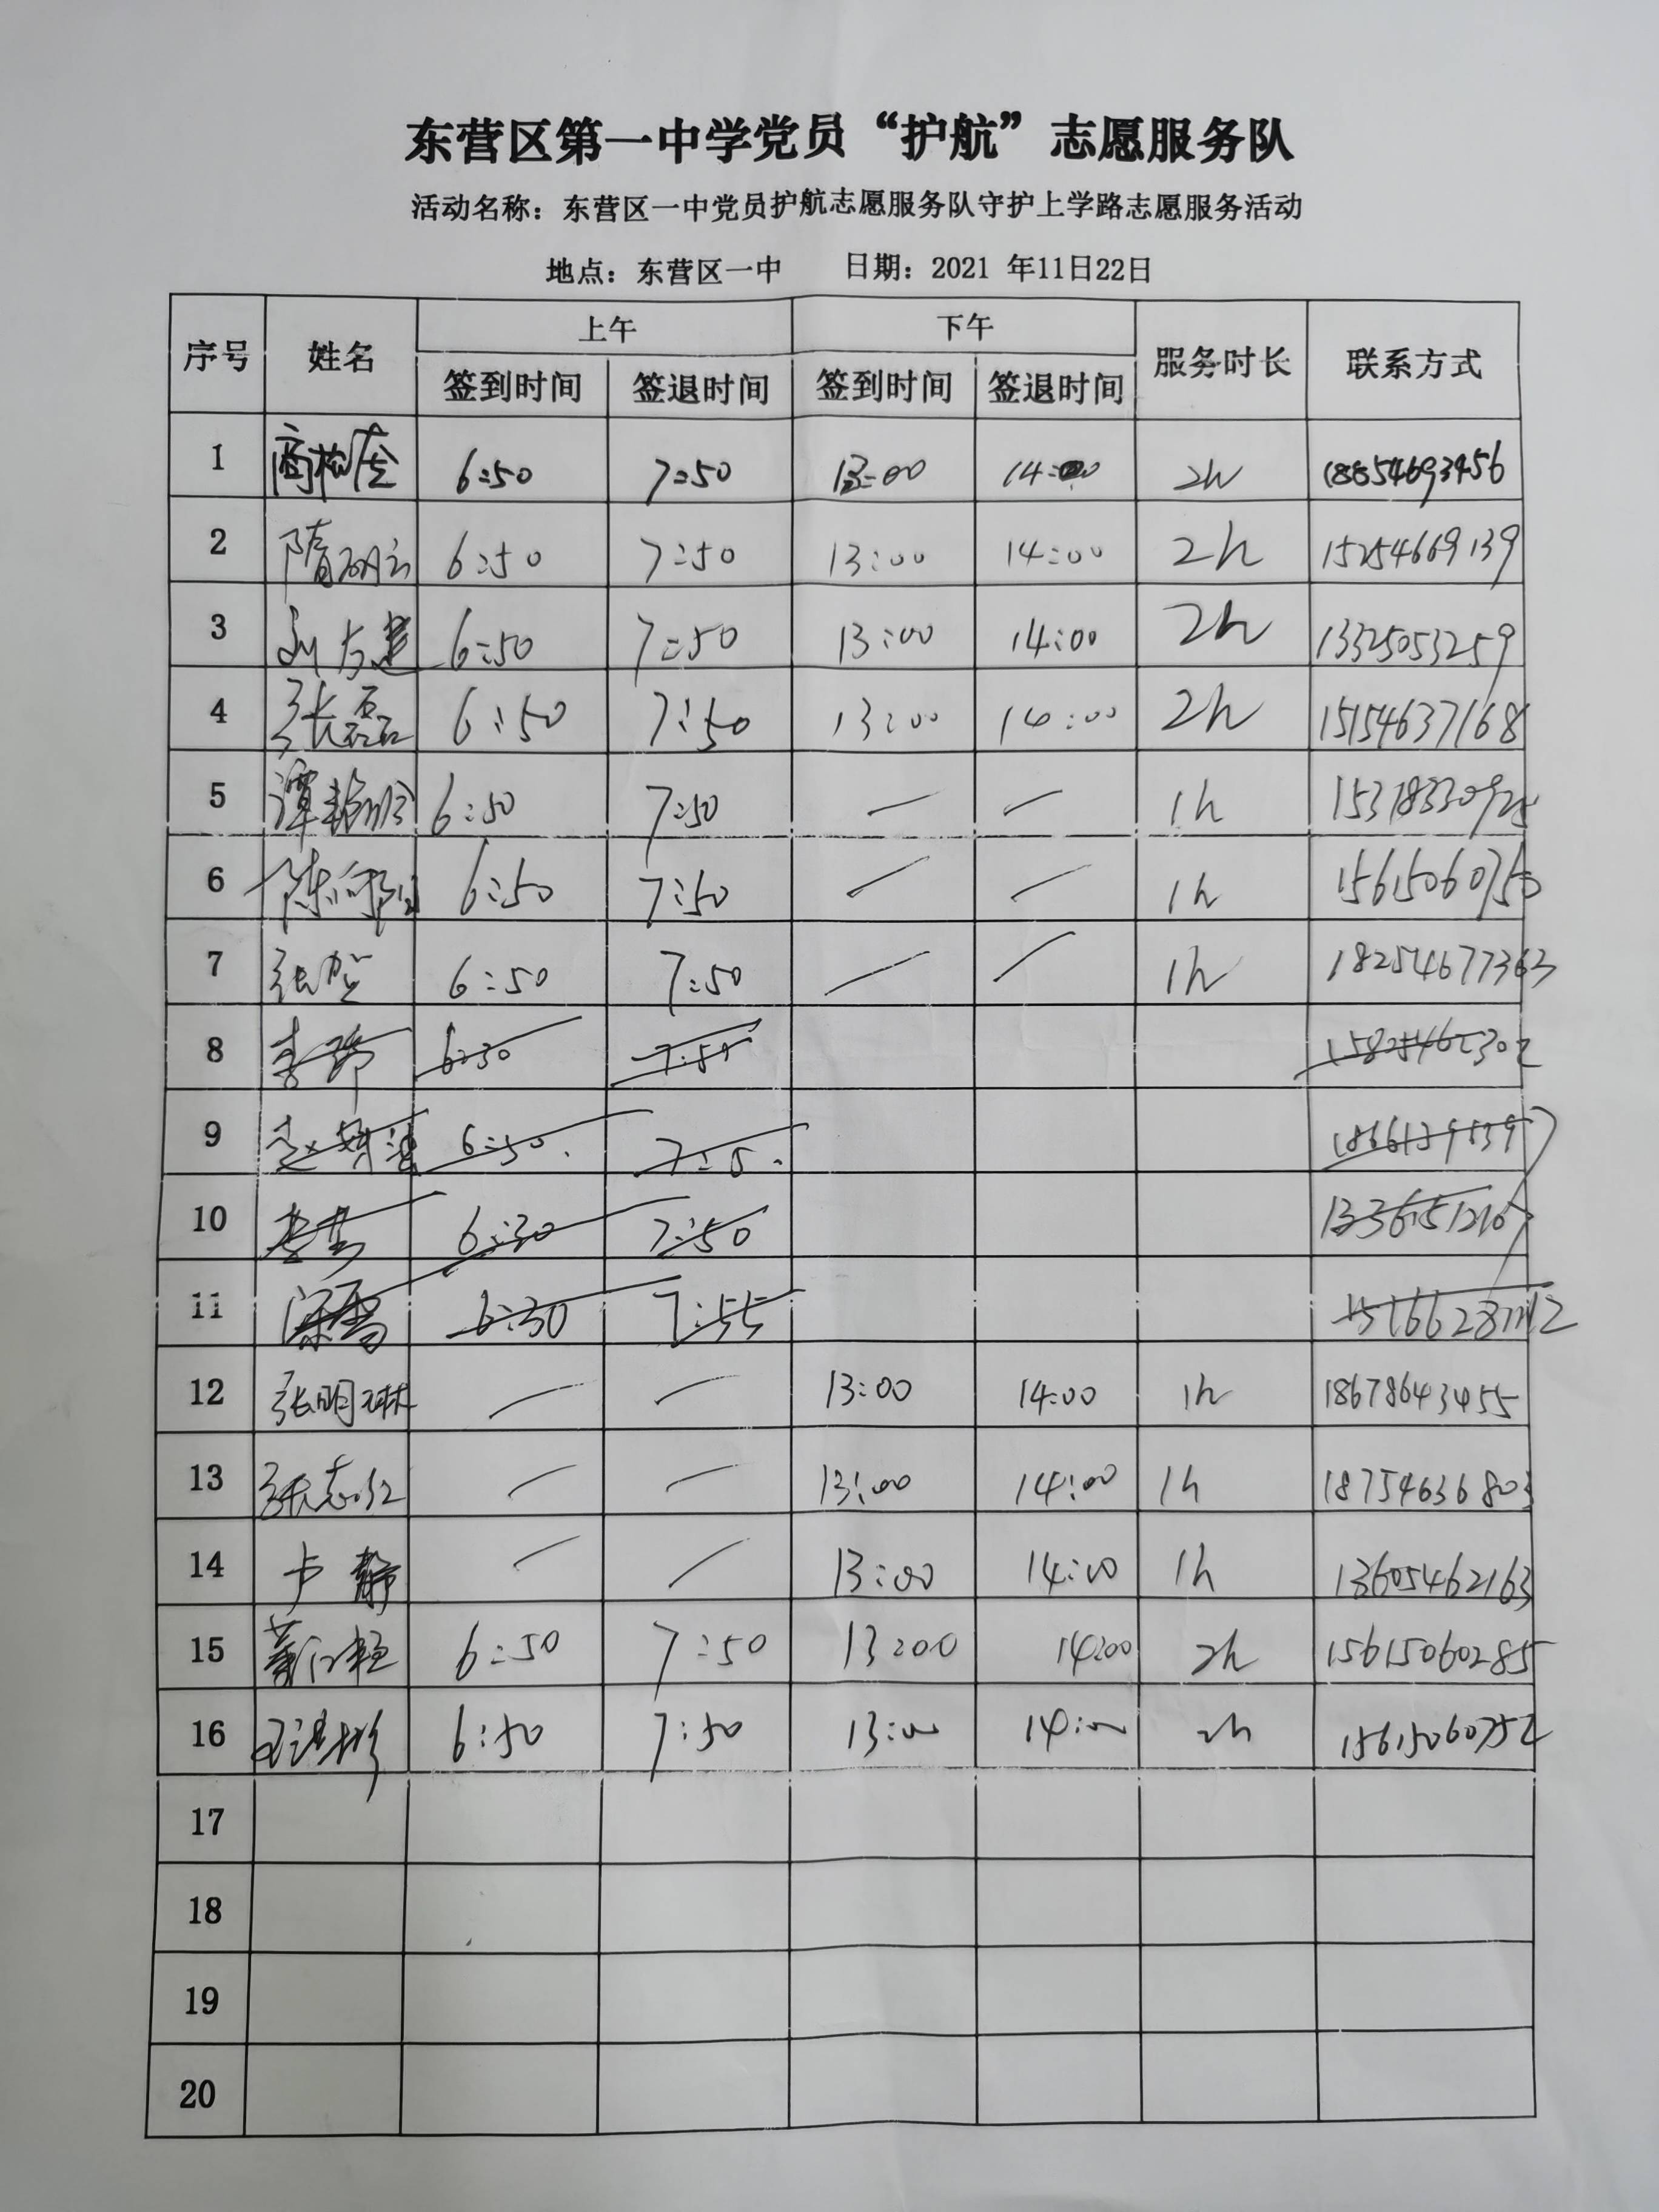 东营区第一中学党员“护航”志愿服务队
活动名称：东营区一中党员护航志愿服务队守护上学路志愿服务活动
地点：东营区一中 日期：2021 年11日22日
序号 姓名 上午 下午 服务时长 联系方式
签到时间 签退时间 签到时间 签退时间
1 6:50 7:50 13:00 14:00 2h 18854693456
2 隋 6:50 7:50 13:00 14:00 2h 15254669139
3 刘方建 6:50 7:50 13:00 14:00 2h 13325053259
4 张磊 6:50 7:50 13:00 14:00 2h 15154637168
5 谭 6:50 7:50 — — 1h 15318330925
6 陈向阳 6:50 7:50 — — 1h 15615060750
7 张贺 6:50 7:50 — — 1h 18254677363
8 6:30 7:50
9 6:50 7:5
10 6:30 7:50
11 6:30 7:55
12 张明琳 — — 13:00 14:00 1h 18678643455
13 张志 — — 13:00 14:00 1h 18754636803
14 卢静 — — 13:00 14:00 1h 13605462163
15 6:50 7:50 13:00 14:00 2h 15615060285
16 6:50 7:50 13:00 14:00 2h 15615060752
17
18
19
20